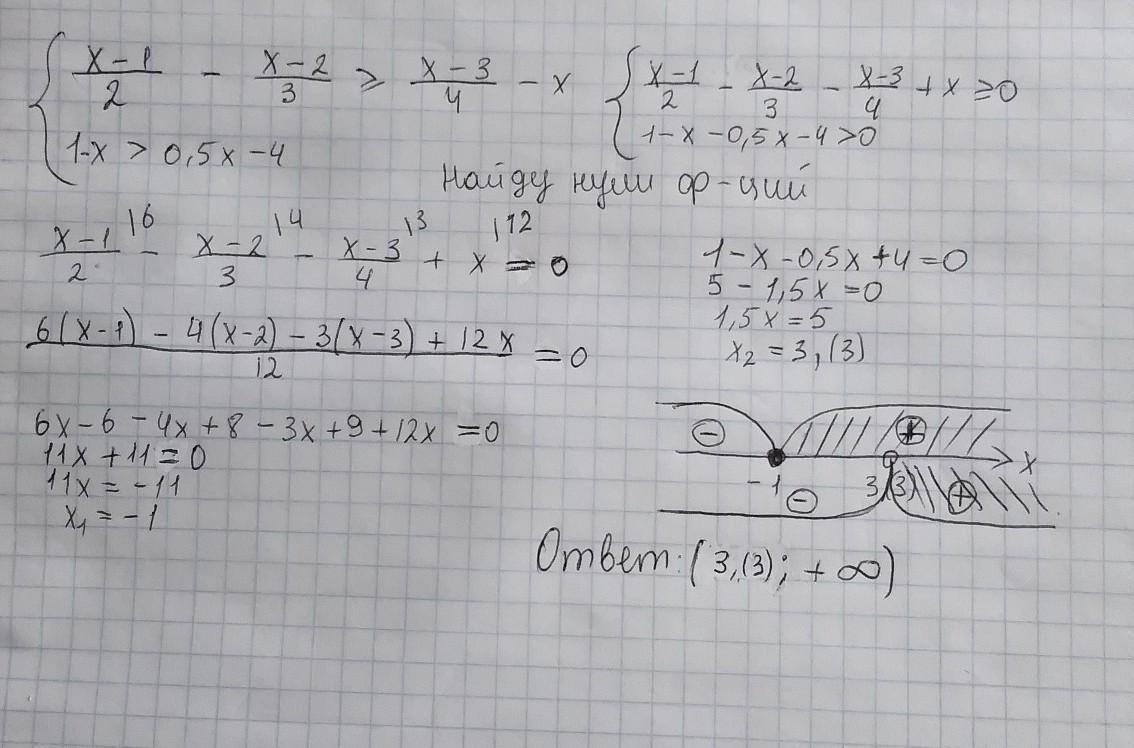 { (x-1)/2 - (x-2)/3 ≥ (x-3)/4 - x
1-x > 0,5x-4
{ (x-1)/2 - (x-2)/3 - (x-3)/4 + x ≥ 0
1-x-0,5x-4>0
Найду нули ф-ций
(x-1)/2 \6 - (x-2)/3 \4 - (x-3)/4 \3 + x \12 = 0
(6(x-1) - 4(x-2) - 3(x-3) + 12x)/12 = 0
6x-6-4x+8-3x+9+12x=0
11x+11=0
11x=-11
x₁=-1
1-x-0,5x+4=0
5-1,5x=0
1,5x=5
x₂=3,(3)
- +
-1 3,(3) x
- +
Ответ: (3,(3); +∞)